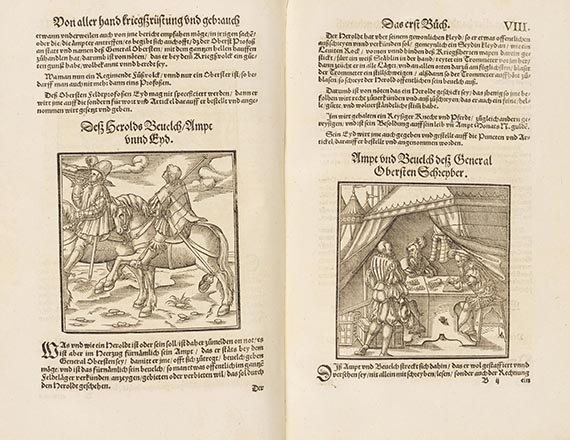 Von aller hand kriegßrüstung vnd gebrauch
etwann vnderweilen auch von jme bericht empfahen möge/in zeigen sach/
oder die/die ämpter antreffen/es begibt sich auch offt/dz der Oberst Profoß
an statt vnd namen deß General Obersten/mit dem gantzen hellen hauffen
zůhandlen hat/ darumb ist von nöten/ das er bey dem Kriegßvolck ein gůte
gunst hab/wolbekant vnnd beredt sey.
Wa man nun ein Regimendt Fůßvolck/ vnnd nur ein Oberster ist/so be-
darff man auch nit mehr dann eins Profossen.
Deß Obersten Feldtprofosen Eyd mag nit specificiert werden/ dann er
wirt jme auff die sondern fürwort vnd Articel darauff er bestellt vnd ange-
nommen wirt gesetzt vnd geben.
Deß Herolds Beuelch/Ampt
vnnd Eyd.
WAs vnd wie ein Heroldt ist oder sein soll/ist daher zůmelden on not/es
ist aber im Heerzug fürnämlich sein Ampt / das er stäts bey dem
General Obersten sey/ damit er jme/ offt sichs zůtregt/ beuelch geben
möge/vnd ist das fürnämlich sein beuelch/ so man etwas offentlich im gantzen
Feldläger verkünden/anzeygen/gebieten oder verbieten wil/das sol durch
den Heroldt geschehen.
Der
Das erst Bůch. VIII.
Der Heroldt hat vber seinem gewonlichen Kleyd/ so er etwas offentlichen
außschreyen vnnd verkünden sol/ gemeynlich ein Seydin Kleyd an/ wie ein
Leuiten Rock/ vornen vnnd hinden deß Kriegßherren wapen darein ge-
stickt/ fůrt ein weiß Stäblin in der handt/reytet ein Trommeter vor jm her/
dann zeücht er in alle Läger/ vnd an allen orten darzů am füglichsten/ blaßt
der Trommeter ein stillschweigen / alsdann so der Trommeter auffhört zů
blasen/so schreyt der Herold offentlichen sein beuelch auß.
Darumb ist von nöten das ein Herold geschickt sey/ das er/wie es jme be-
folhen wirt recht zůuerkünden vnd außzůschreyen/ das er auch ein feine/ hel-
le/ gůte/ vnd wolverständliche stiñ hab.
Jm wirt gehalten ein Reysiger Knecht vnd Pferdt/ zůgleich andern ge-
reysigen/ vnd ist sein Besoldung auff sein leib vñ Ampt Monats N. guldẽ.
Sein Eyd wirt jme auch gegeben vnd gestellt auff die Puncten vnd Ar-
tickel/darauff er bestellt vnd angenommen worden.
Ampt vnd Beuelch deß General
Obersten Schreyber.
DIß Ampt vnd Beuelch streckt sich dahin/ das er wol gestaffiert vnnd
versehen sey/ nit allein mit schreyben/lesen/ sonder auch der Rechnung
B ij ein